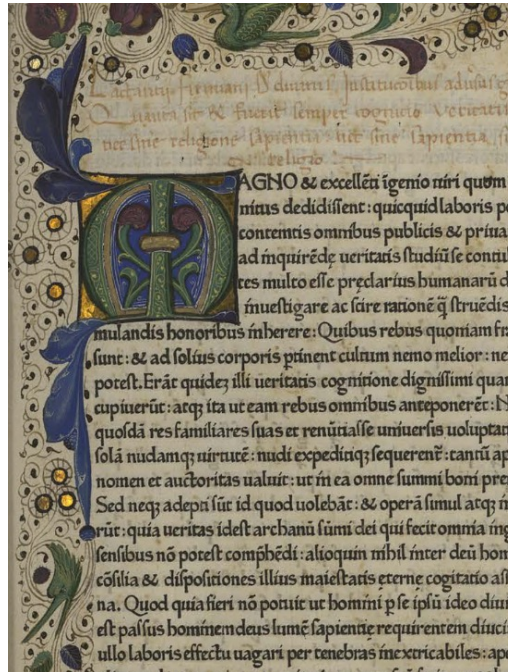 Lactantii Firmiani D diuinis Institucõibus aduersus g
Quanta sit & fuerit semper cognicio veritati
nec sine religione sapientia nec sine sapientia
religio
MAGNO & excellẽti ĩgenio uiri quom
mitus dedidissent: quicquid laboris p
contemtis omnibus publicis & priua
ad inquirẽdę ueritatis studiũ se contul
tes multo esse pręclarius humanarũ d
inuestigare ac scire rationẽ q̃ struẽdis
mulandis honoribus inherere: Quibus rebus quoniam fra
sunt: & ad solius corporis ꝑtinent cultum nemo melior: ne
potest. Erãt quidẽ illi ueritatis cognitione dignissimi quam
cupiuerũt: atqꝫ ita ut eam rebus omnibus anteponerẽt: N
quosdã res familiares suas et renũtiasse uniuersis uoluptati
solã nudamqꝫ uirtutẽ: nudi expeditiqꝫ sequerent̃: tantũ ap
nomen et auctoritas ualuit: ut in ea omne summi boni pre
Sed neqꝫ adepti sũt id quod uolebãt: & operã simul atqꝫ in
rũt: quia ueritas idest archanũ sũmi dei qui fecit omnia ing
sensibus nõ potest cõphẽdi: alioquin nihil inter deũ hom
cõsilia & dispositiones illius maiestatis eterne cogitatio ass
na. Quod quia fieri nõ potuit ut homini ꝑ se ipsũ ideo diui
est passus hominem deus lumẽ sapientię requirentem diuci
ullo laboris effectu uagari per tenebras inextricabiles: ape